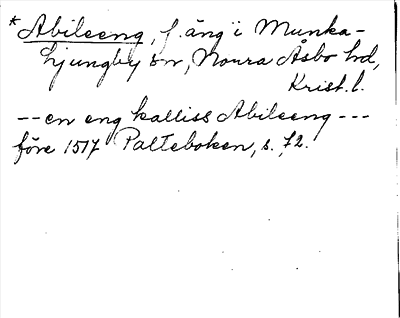 * Abileeng, f. äng i Munka-
Ljungby sn, Norra Åsbo hd,
Krist. l.
-- en eng kalliss Abileeng ---
före 1517 Palteboken, s. 72.